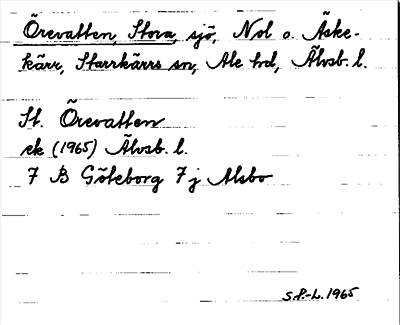 Örevatten, Stora, sjö, Nol o. Äske-
kärr, Starrkärrs sn, Ale hd, Älvsb. l.
St. Örevatten
ek (1965) Älvsb. l.
7 B Göteborg 7 j Alsbo
S.P.-L. 1965